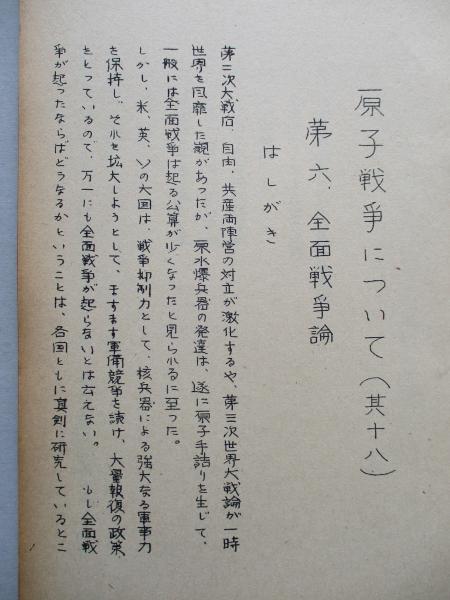 原子戦争について（其十八）
第六、全面戦争論
はしがき
第二次大戦后、自由、共産両陣営の対立が激化するや、第三次世界大戦論が一時
世界を風靡した観があったが、原水爆兵器の発達は、遂に原子手詰りを生じて、
一般には全面戦争は起る公算が少くなったと見られるに至った。
しかし、米、英、ソの大国は、戦争抑制力として、核兵器による強大なる軍事力
を保持し、それを拡大しようとして、ますます軍備競争を続け、大量報復の政策
をとっているので、万一にも全面戦争が起らないとは云えない。　もし全面戦
争が起ったならばどうなるかということは、各国ともに真剣に研究しているとこ